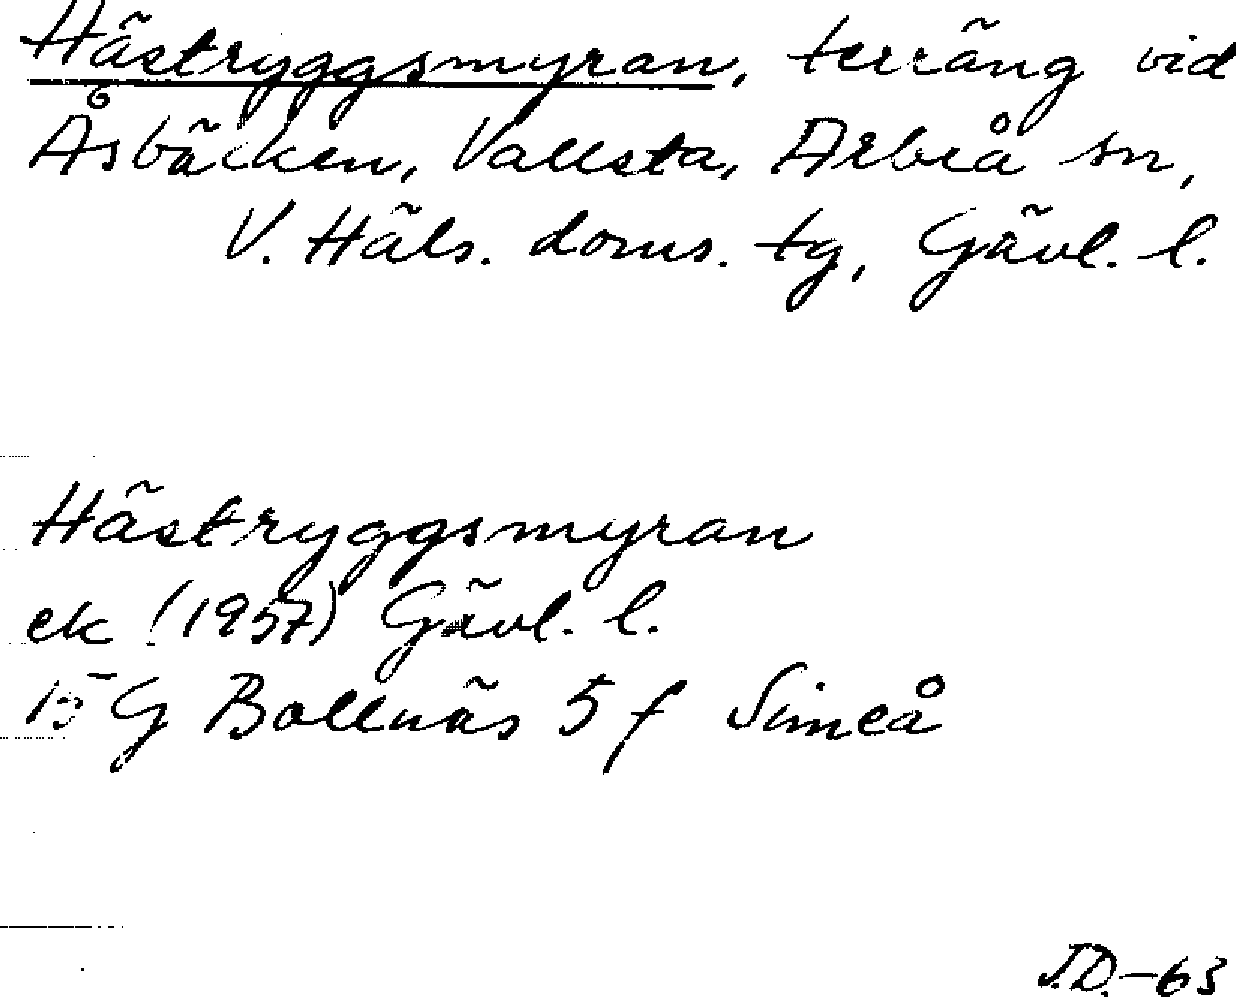 Hästryggsmyran, terräng vid
Åsbäcken, Vallsta, Arbrå sn,
V. Häls. doms. tg, Gävl. l.
Hästryggsmyran
ek (1957) Gävl. l.
15 G Bollnäs 5 f Simeå
J.D.-63